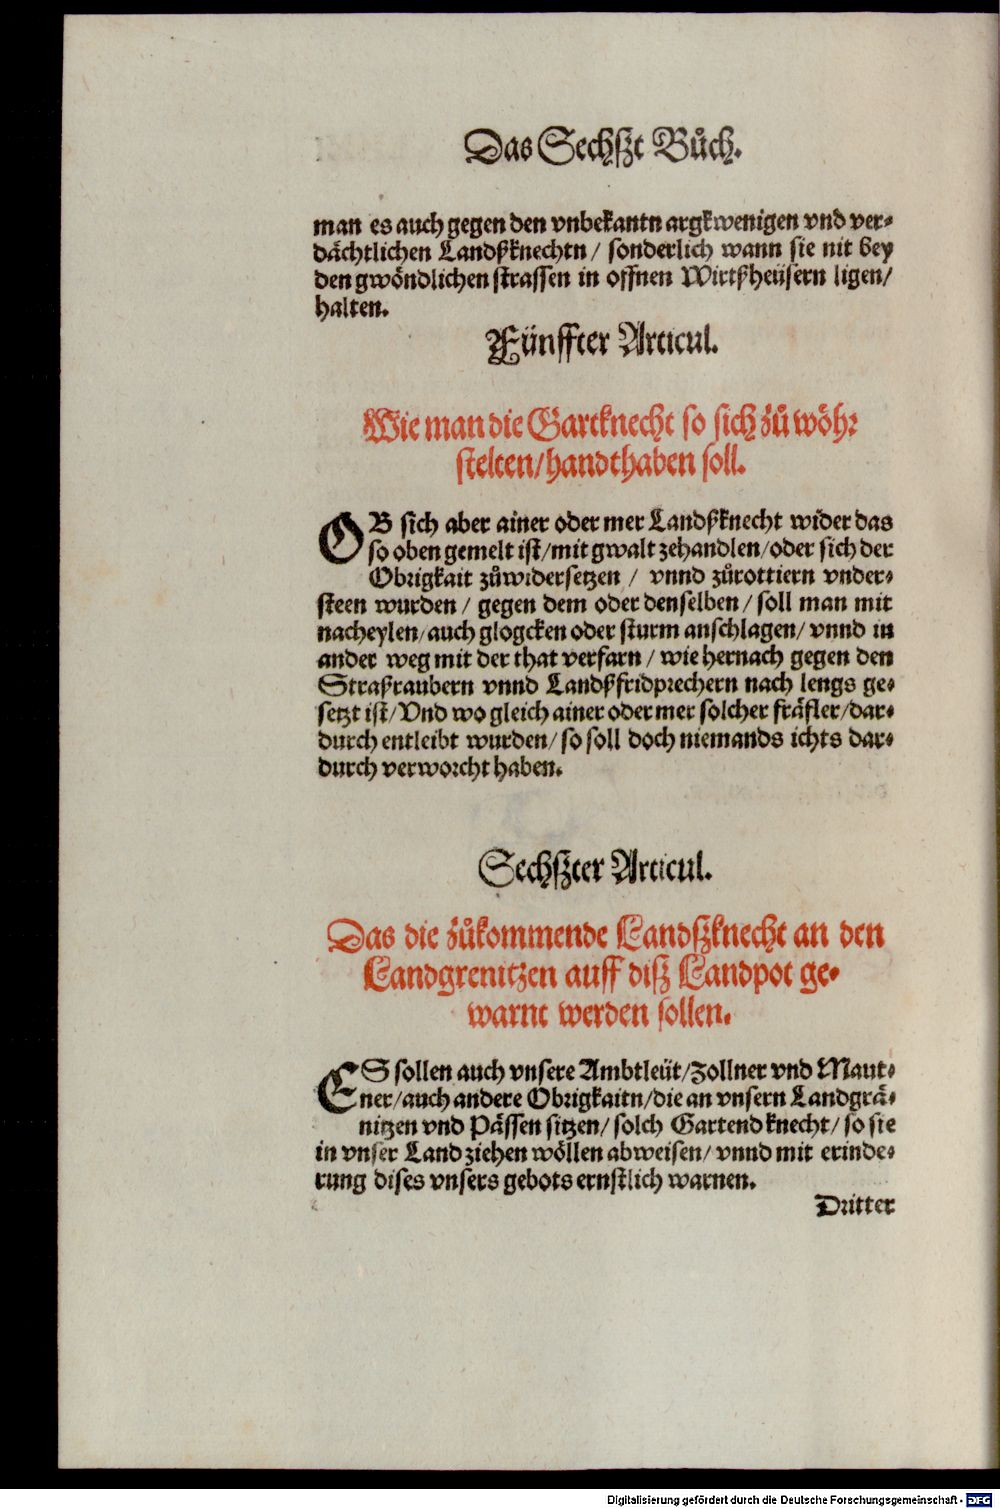 Das Sechſzt Bůch.
man es auch gegen den vnbekantn argkwenigen vnd ver⸗
dächtlichen Landßknechtn / sonderlich wann sie nit bey
den gwöndlichen strassen in offnen Wirtßheüsern ligen/
halten.
Fünffter Articul.
Wie man die Gartknecht so sich zů wöhr
stelten/handthaben soll.
OB sich aber ainer oder mer Landßknecht wider das
so oben gemelt ist/mit gwalt zehandlen/oder sich der
Obrigkait zůwidersetzen / vnnd zůrottiern vnder⸗
steen wurden / gegen dem oder denselben / soll man mit
nacheylen/auch glogcken oder sturm anschlagen/ vnnd in
ander weg mit der that verfarn / wie hernach gegen den
Straßraubern vnnd Landßfridprechern nach lengs ge⸗
setzt ist/Vnd wo gleich ainer oder mer solcher fräfler/dar⸗
durch entleibt wurden/ so soll doch niemands ichts dar⸗
durch verworcht haben.
Sechſzter Articul.
Das die zůkommende Landſzknecht an den
Landgrenitzen auff diſz Landpot ge⸗
warnt werden sollen.
ES sollen auch vnsere Ambtleüt/Zollner vnd Maut⸗
ner/auch andere Obrigkaitn/die an vnsern Landgrä⸗
nitzen vnd Pässen sitzen/ solch Gartend knecht/ so sie
in vnser Land ziehen wöllen abweisen/ vnnd mit erinde⸗
rung dises vnsers gebots ernstlich warnen.
Dritter
Digitalisierung gefördert durch die Deutsche Forschungsgemeinschaft - DFG